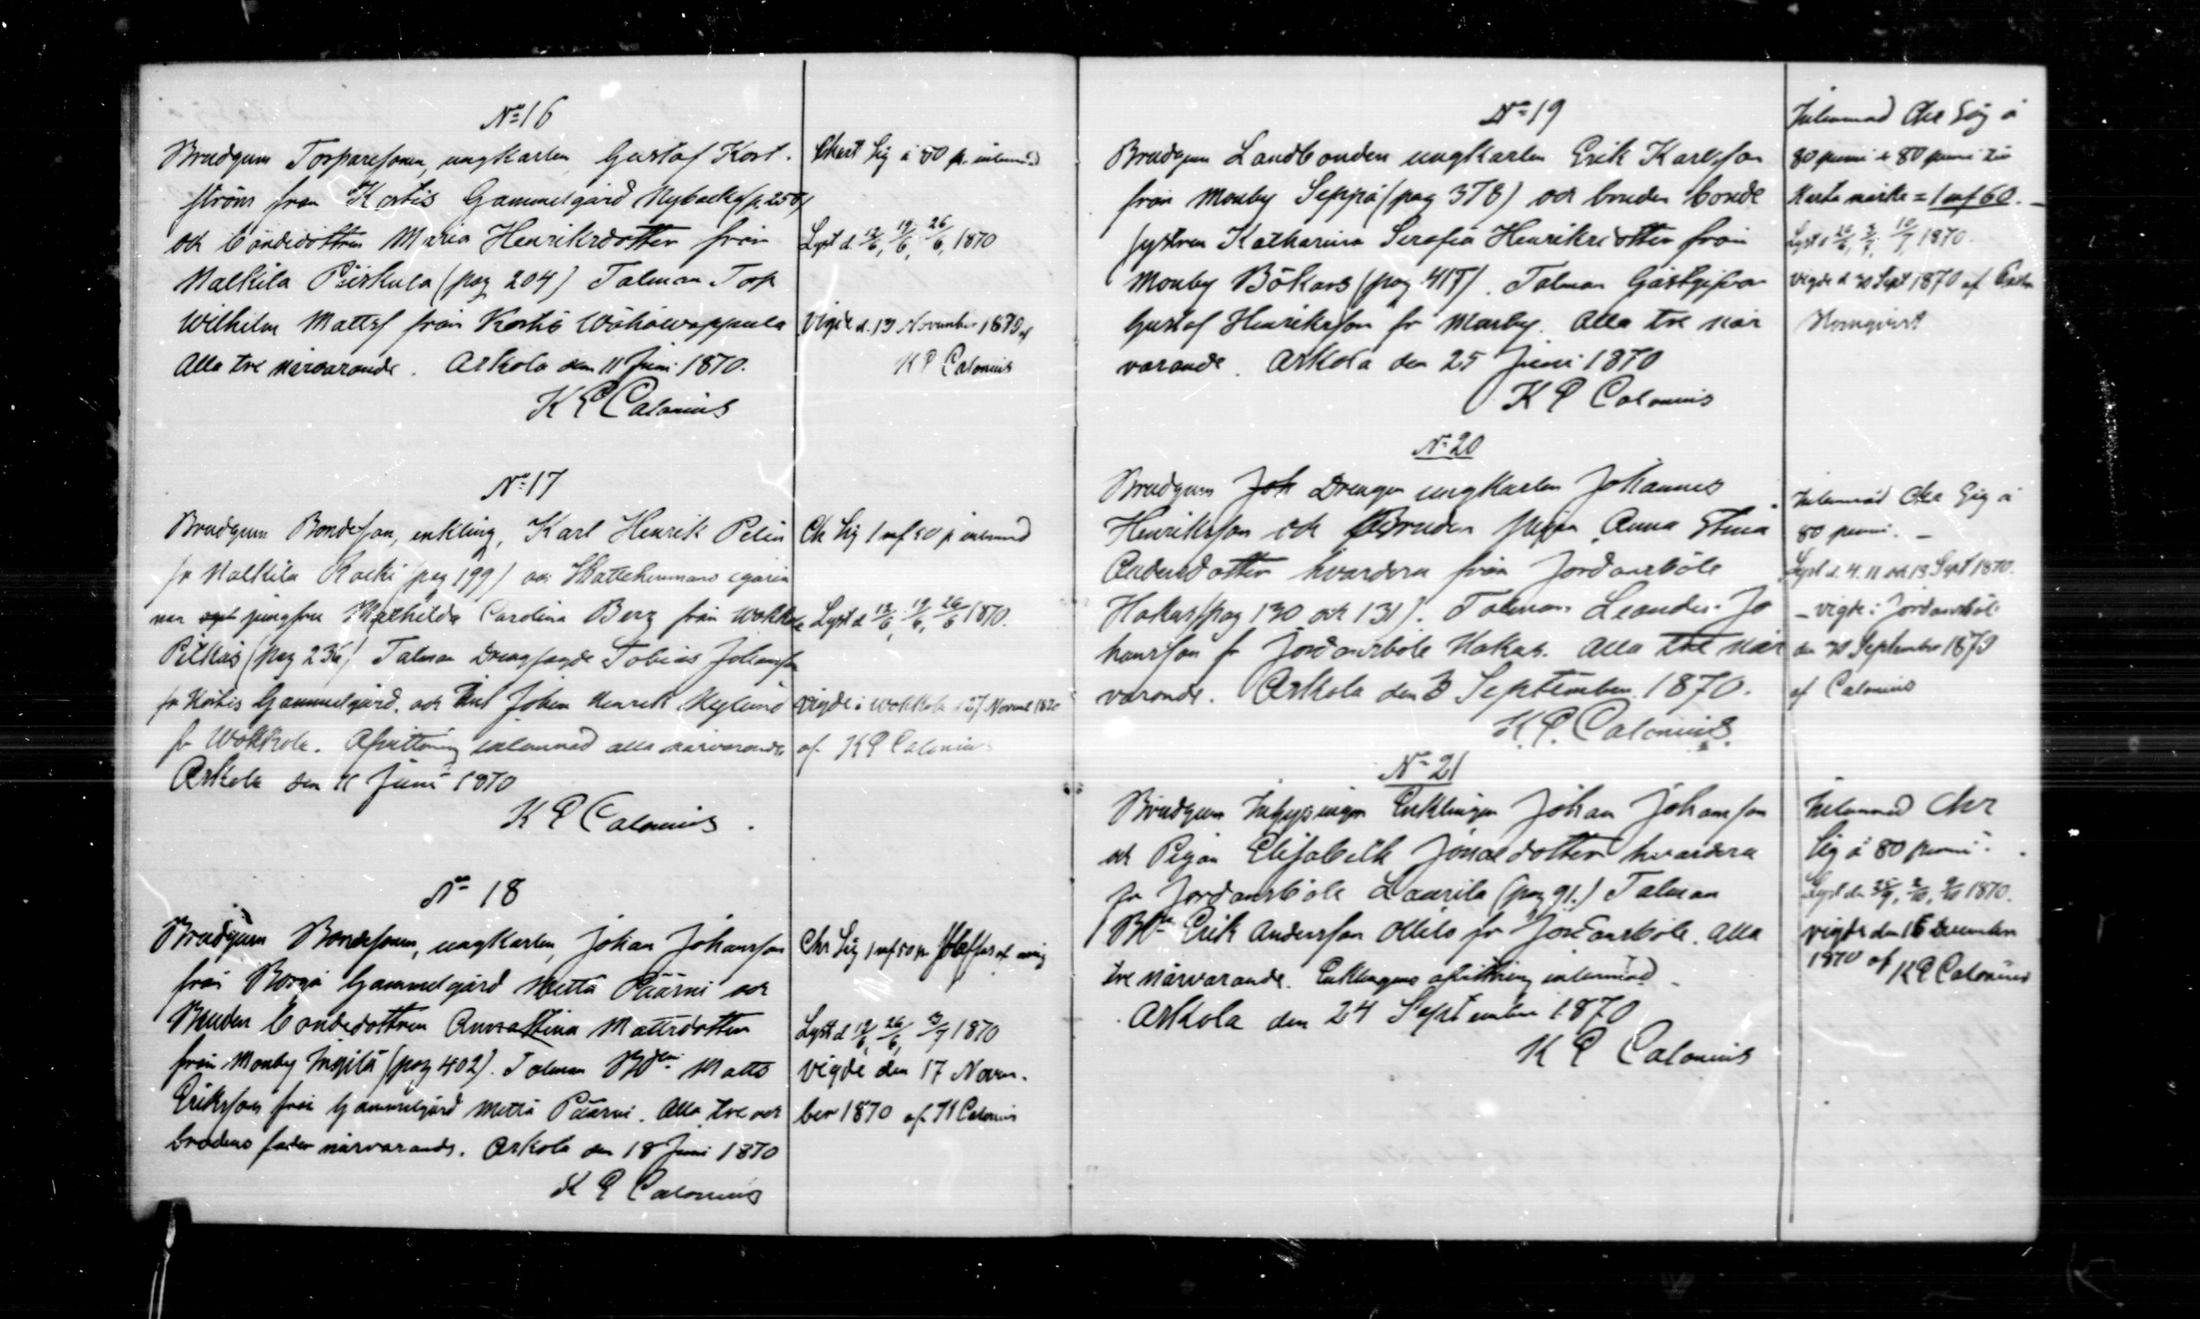 No 16
Brudgum Torparesonen, ungkarlen Gustaf Kort-
ström från Kortis Gammelgård Nybacka (p 250)
och bondedottren Maria Henriksdotter från
Malkila Piiskula (pag 204) Talman Torp
Wilhelm Mattsf från Kortis Wähäwappula
Alla tre närvarande. Askola den 11 Juni 1870.
K P Calonius
Chart Sig à 80 p. inlemnad
Lyst d. 12/6, 19/6, 26/6, 1870
Vigde d. 13 November 1870 af
K P Calonius
No 17
Brudgum Bondeson, enkling, Karl Henrik Pelin
fr Malkila Kaeki (pag 199) och
jungfru Mathilda Carolina Berg från Wakkola
Pilkäs (pag 236) Talman Tobias Johansson
fr Kortis Gammelgård. och Johan Henrik Nylund
fr Wakkola. Afvittring inlemnad alla närvarande
Askola den 11 Juni 1870
K P Calonius.
Ch Sig 1 mf 20 p inlemnad
Lyst d 12/6, 19/6, 26/6 1870.
Vigde i Wakkola d 27 Novemb 1870
af K P Calonius
No 18
Brudgum Bondesonen, ungkarlen, Johan Johansson
från Borgå Gammelgård Mettä Päärni och
Bruden bondedottren Anna Stina Mattsdotter
från Monby Ingilä (pag 402). Talman Matts
Eriksson från Gammelgård Mettä Päärni. Alla tre och
brudens fader närvarande. Askola den 18 Juni 1870
K P Calonius
Chr Sig 1 mf 50 p
Lyst d 19/6, 26/6, 3/7 1870
Vigde den 17 Novem-
ber 1870 af K Calonius
No 19
Brudgum Landbonden ungkarlen Erik Karlsson
från Monby Seppä (pag 378) och bruden bonde
systren Katharina Serafia Henriksdotter från
Monby Bökars (pag 417). Talman Gästgifvar
Gustaf Henriksson fr Monby. Alla tre när
varande. Askola den 25 Juni 1870
K P Calonius
Inlemnad Cha Sig à
80 penni & 80 penni
Karta märke = 1 mf 60. —
Lyst d 26/6, 3/7, 10/7 1870.
Vigde d 30 Sept 1870 af
No 20
Brudgum Joh Drengen ungkarlen Johannes
Henriksson och Bruden pigan Anna Stina
Andersdotter hvardera från Jordansböle
Hakas (pag 130 och 131). Talman Leander Jo
hansson fr Jordansböle Hakas. Alla tre när
varande. Askola den 3 September 1870.
K. P. Calonius.
Inlemnad Cha Sig à
80 penni. —
Lyst d. 4. 11 och 18 Sept 1870.
— vigde i Jordansböle
den 30 September 1870
af Calonius
No 21
Brudgum Inhysingen Enklingen Johan Johansson
och Pigan Elisabeth Jonaedotter hvardera
fr Jordansböle Laurila (pag 91.) Talman
Erik Andersson Ollils fr Jordansböle. Alla
tre närvarande. Enklingens afvittring inlemnad.
Askola den 24 September 1870
K P Calonius
Inlemnad Chr
Sig à 80 penni.
Lyst den 25/9, 2/10, 9/10 1870.
Vigde den 16 December
1870 af K P Calonius